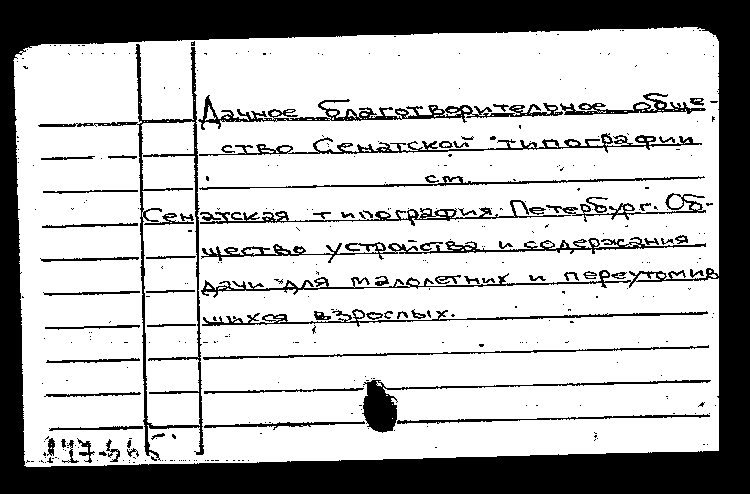 Дачное благотворительное обще-
ство Сенатской типографии
см.
Сенатская типография. Петербург. Об-
щество устройства и содержания
дачи для малолетних и переутомив
шихся взрослых.